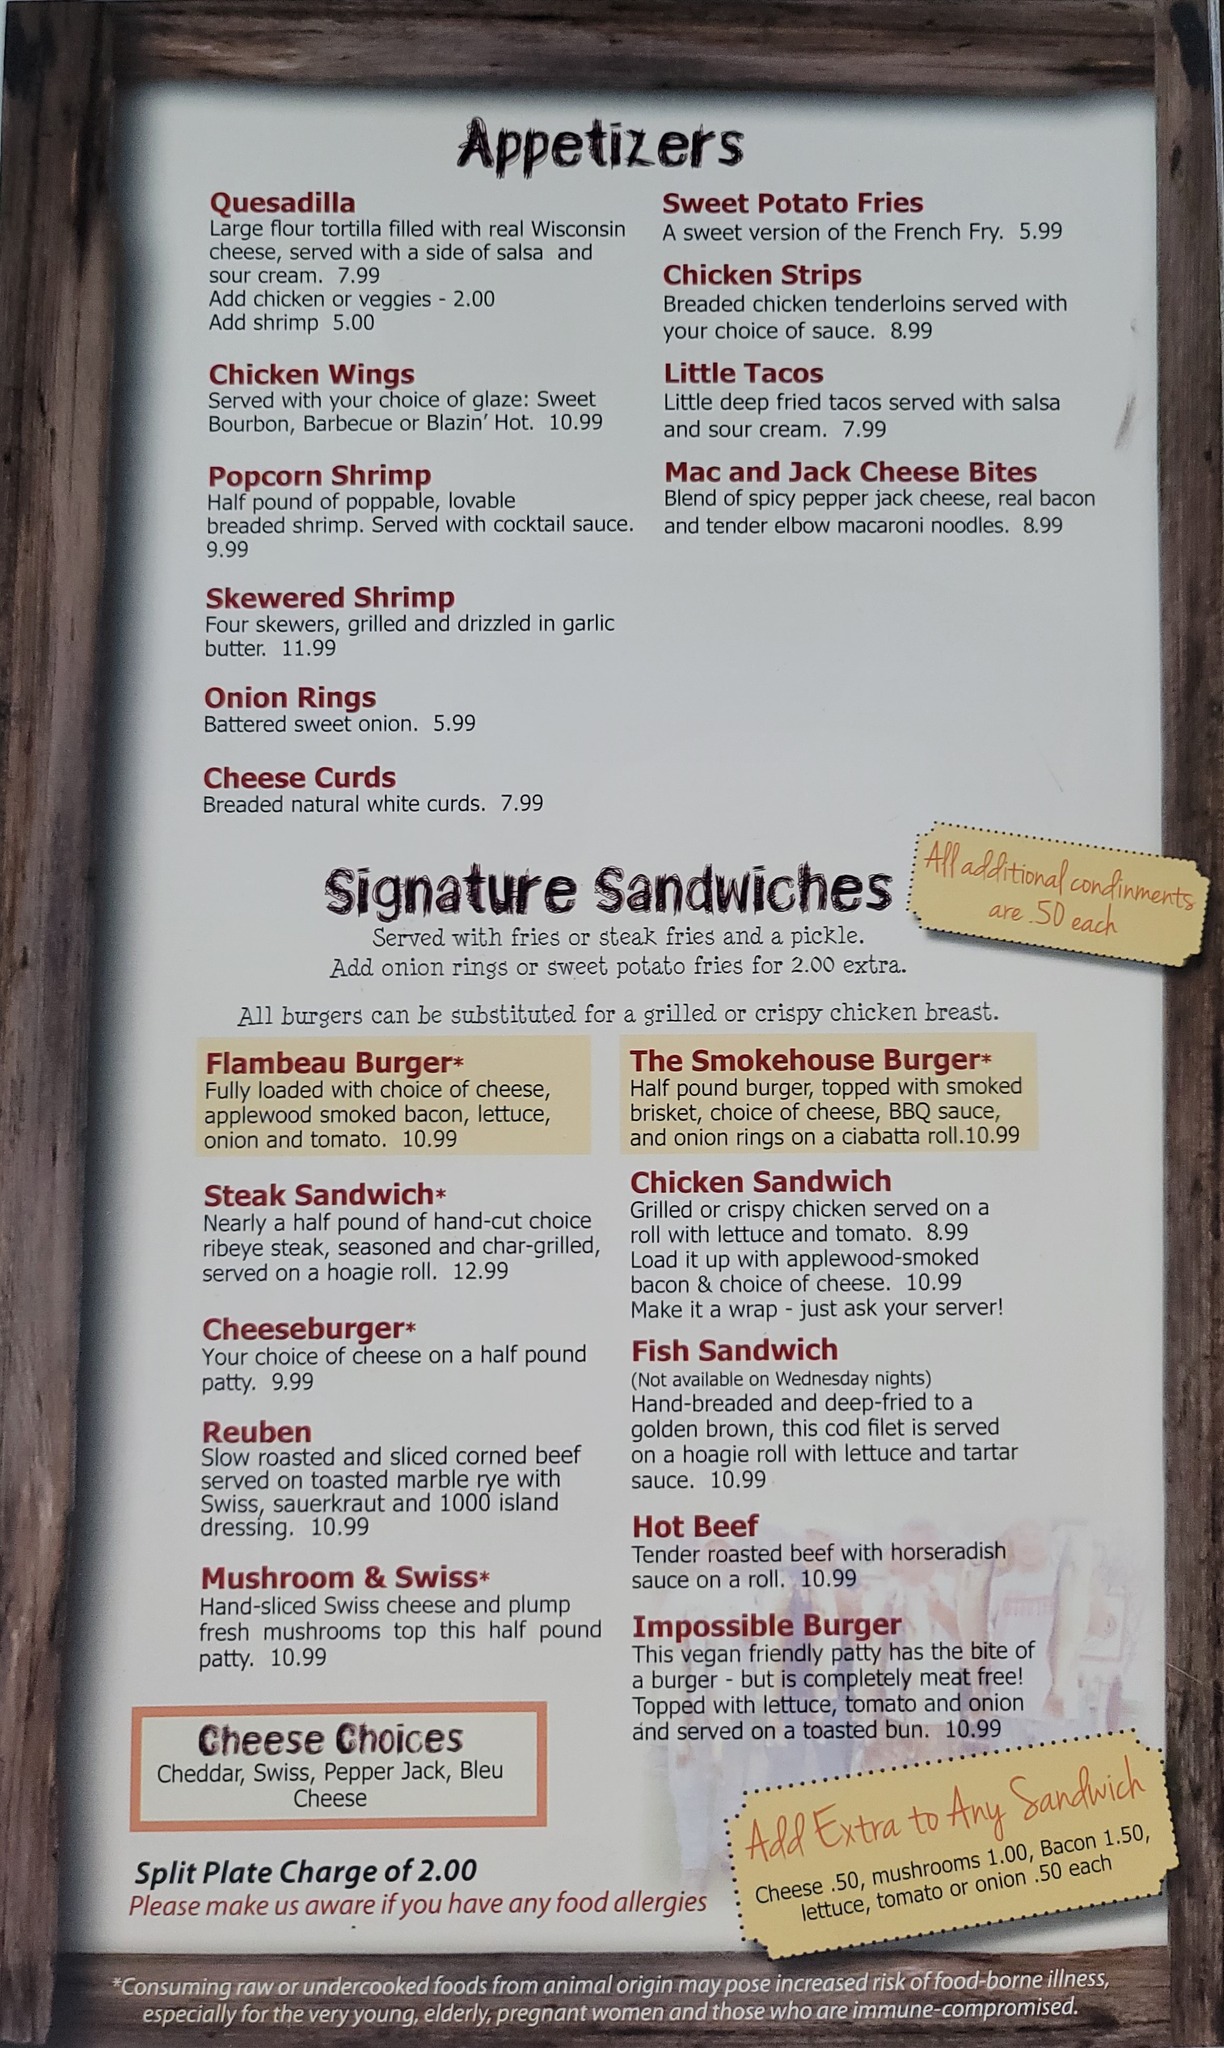 Appetizers
Quesadilla
Large flour tortilla filled with real Wisconsin
cheese, served with a side of salsa and
sour cream. 7.99
Add chicken or veggies - 2.00
Add shrimp 5.00
Chicken Wings
Served with your choice of glaze: Sweet
Bourbon, Barbecue or Blazin' Hot. 10.99
Popcorn Shrimp
Half pound of poppable, lovable
breaded shrimp. Served with cocktail sauce.
9.99
Skewered Shrimp
Four skewers, grilled and drizzled in garlic
butter. 11.99
Onion Rings
Battered sweet onion. 5.99
Cheese Curds
Breaded natural white curds. 7.99
Sweet Potato Fries
A sweet version of the French Fry. 5.99
Chicken Strips
Breaded chicken tenderloins served with
your choice of sauce. 8.99
Little Tacos
Little deep fried tacos served with salsa
and sour cream. 7.99
Mac and Jack Cheese Bites
Blend of spicy pepper jack cheese, real bacon
and tender elbow macaroni noodles. 8.99
All additional condinments
are .50 each
Signature Sandwiches
Served with fries or steak fries and a pickle.
Add onion rings or sweet potato fries for 2.00 extra.
All burgers can be substituted for a grilled or crispy chicken breast.
Flambeau Burger*
Fully loaded with choice of cheese,
applewood smoked bacon, lettuce,
onion and tomato. 10.99
Steak Sandwich*
Nearly a half pound of hand-cut choice
ribeye steak, seasoned and char-grilled,
served on a hoagie roll. 12.99
Cheeseburger*
Your choice of cheese on a half pound
patty. 9.99
Reuben
Slow roasted and sliced corned beef
served on toasted marble rye with
Swiss, sauerkraut and 1000 island
dressing. 10.99
Mushroom & Swiss*
Hand-sliced Swiss cheese and plump
fresh mushrooms top this half pound
patty. 10.99
The Smokehouse Burger*
Half pound burger, topped with smoked
brisket, choice of cheese, BBQ sauce,
and onion rings on a ciabatta roll.10.99
Chicken Sandwich
Grilled or crispy chicken served on a
roll with lettuce and tomato. 8.99
Load it up with applewood-smoked
bacon & choice of cheese. 10.99
Make it a wrap - just ask your server!
Fish Sandwich
(Not available on Wednesday nights)
Hand-breaded and deep-fried to a
golden brown, this cod filet is served
on a hoagie roll with lettuce and tartar
sauce. 10.99
Hot Beef
Tender roasted beef with horseradish
sauce on a roll. 10.99
Impossible Burger
This vegan friendly patty has the bite of
a burger - but is completely meat free!
Topped with lettuce, tomato and onion
and served on a toasted bun. 10.99
Cheese Choices
Cheddar, Swiss, Pepper Jack, Bleu
Cheese
Add Extra to Any Sandwich
Cheese .50, mushrooms 1.00, Bacon 1.50,
lettuce, tomato or onion .50 each
Split Plate Charge of 2.00
Please make us aware if you have any food allergies
*Consuming raw or undercooked foods from animal origin may pose increased risk of food-borne illness,
especially for the very young, elderly, pregnant women and those who are immune-compromised.